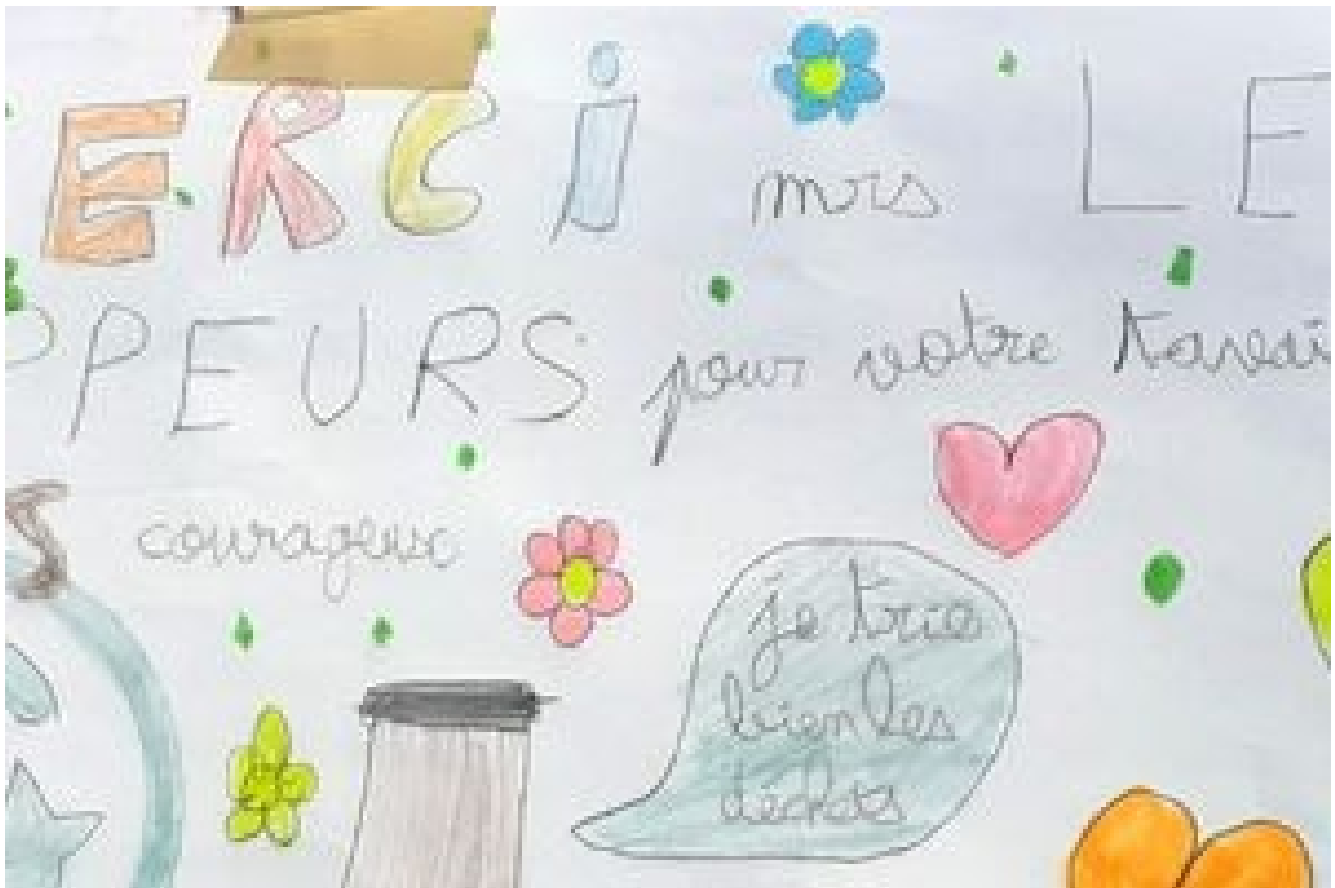 ERCi mrs LE
PPEURS pour votre travai
courageux
je trie
bien les
déchets